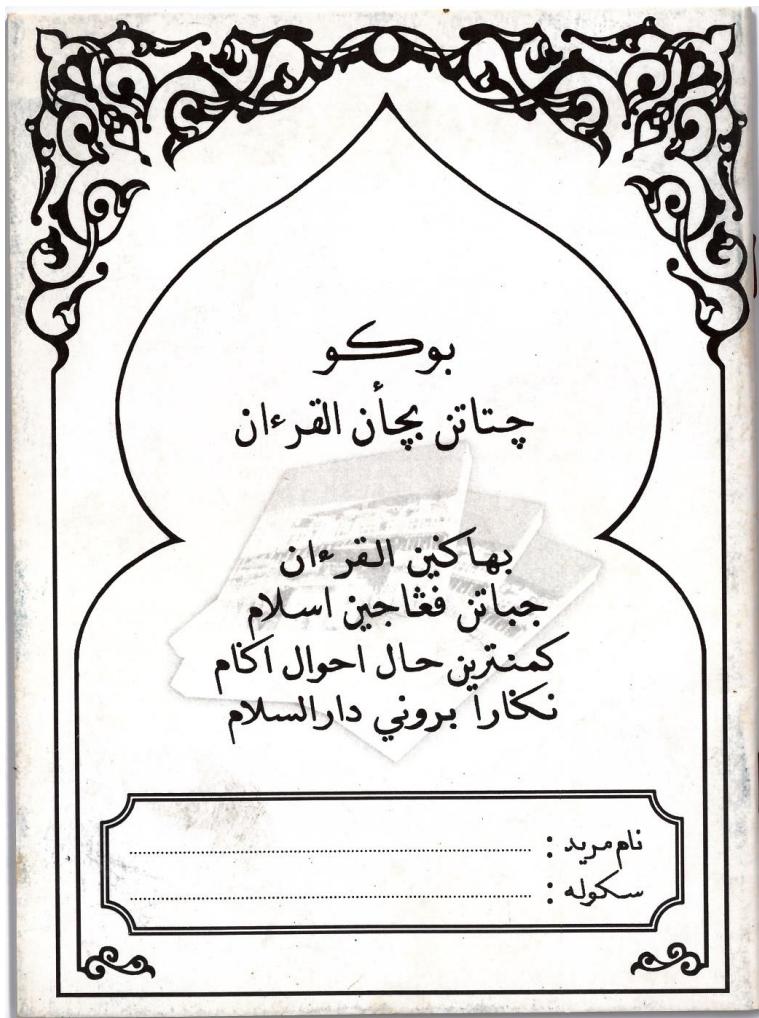 بوكو
چتاتن بچاٴن القرءان
بهاݢين القرءان
جباتن ڤڠاجين اسلام
كمنترين حال احوال اݢام
نݢارا بروني دارالسلام
نام مريد :
سكوله :